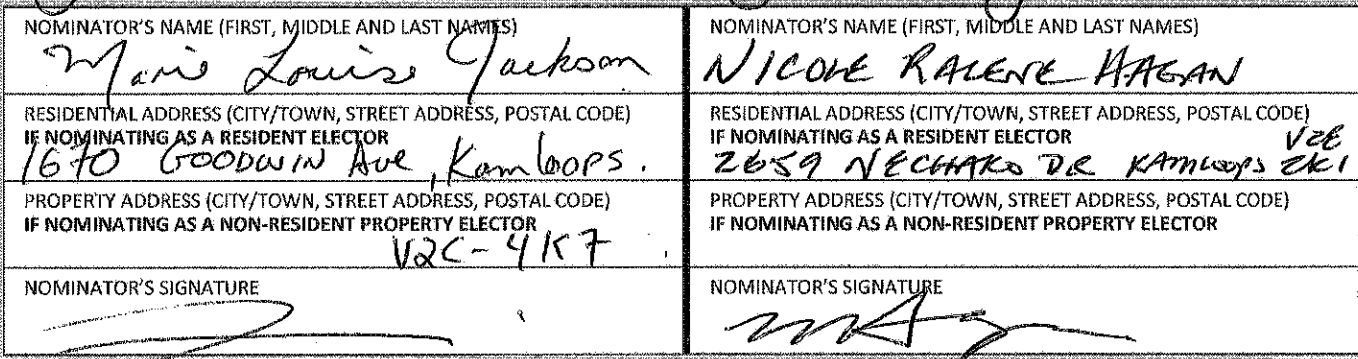 NOMINATOR'S NAME (FIRST, MIDDLE AND LAST NAMES)
Marie Louise Jackson
RESIDENTIAL ADDRESS (CITY/TOWN, STREET ADDRESS, POSTAL CODE)
IF NOMINATING AS A RESIDENT ELECTOR
1670 GOODWIN Ave, Kamloops.
PROPERTY ADDRESS (CITY/TOWN, STREET ADDRESS, POSTAL CODE)
IF NOMINATING AS A NON-RESIDENT PROPERTY ELECTOR
V2C-4K7
NOMINATOR'S SIGNATURE
NOMINATOR'S NAME (FIRST, MIDDLE AND LAST NAMES)
NICOLE RALENE HAGAN
RESIDENTIAL ADDRESS (CITY/TOWN, STREET ADDRESS, POSTAL CODE)
IF NOMINATING AS A RESIDENT ELECTOR
V2E
2659 NECHAKO DR KAMLOOPS 2K1
PROPERTY ADDRESS (CITY/TOWN, STREET ADDRESS, POSTAL CODE)
IF NOMINATING AS A NON-RESIDENT PROPERTY ELECTOR
NOMINATOR'S SIGNATURE